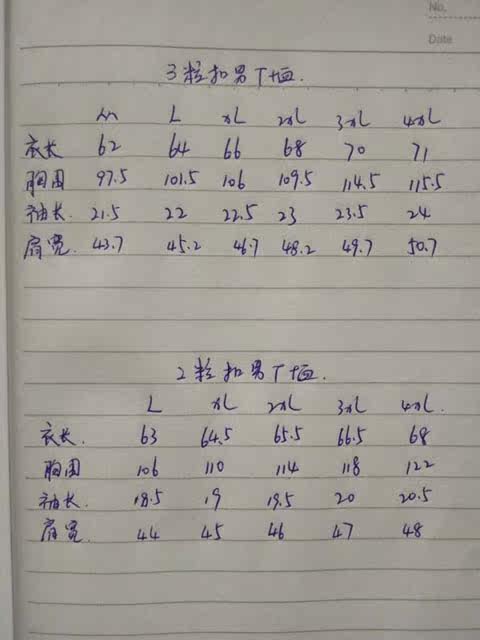 No.
Date
3粒扣男T恤.
M L XL 2XL 3XL 4XL
衣长 62 64 66 68 70 71
胸围 97.5 101.5 106 109.5 114.5 115.5
袖长. 21.5 22 22.5 23 23.5 24
肩宽. 43.7 45.2 46.7 48.2 49.7 50.7
2粒扣男T恤.
L XL 2XL 3XL 4XL.
衣长. 63 64.5 65.5 66.5 68
胸围 106 110 114 118 122
袖长. 18.5 19 19.5 20 20.5
肩宽. 44 45 46 47 48